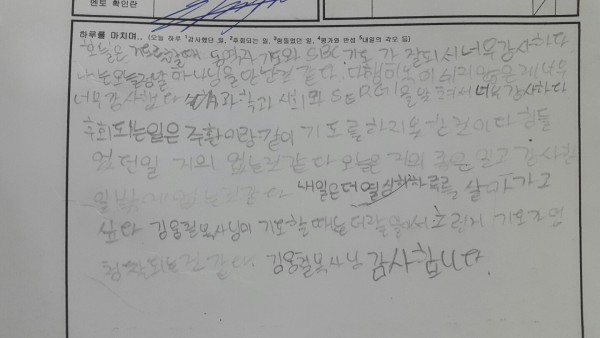 멘토 확인란
하루를 마치며... (오늘 하루 ¹감사했던 일, ²후회되는 일, ³힘들었던 일, ⁴평가와 반성 ⁵내일의 각오 등)
오늘은 기도할때 동역자 기도와 SBC기도 가 잘되서너무감사하다
나는오늘정말 하나님을만난것 같다 다행히도 이 너무
너무감사했다 과학과 사회와 너무감사하다
후회되는일은 주환이랑같이 기도를하지못한것이다 힘들
었던일 거의 없는것같다 오늘은 거의 좋은 일고 감사한
일밖에없는것같다 내일은더열심히하루를 살아가고
싶다 김용철목사님이 기도할때는 기도가
정말잘되는것 같다. 김용철목사님 감사합니다.